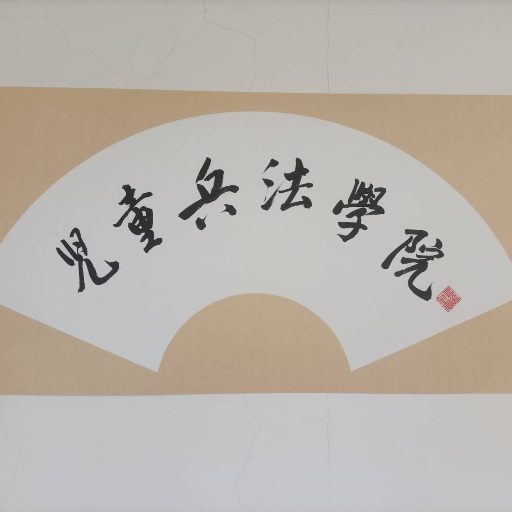 兒童兵法學院